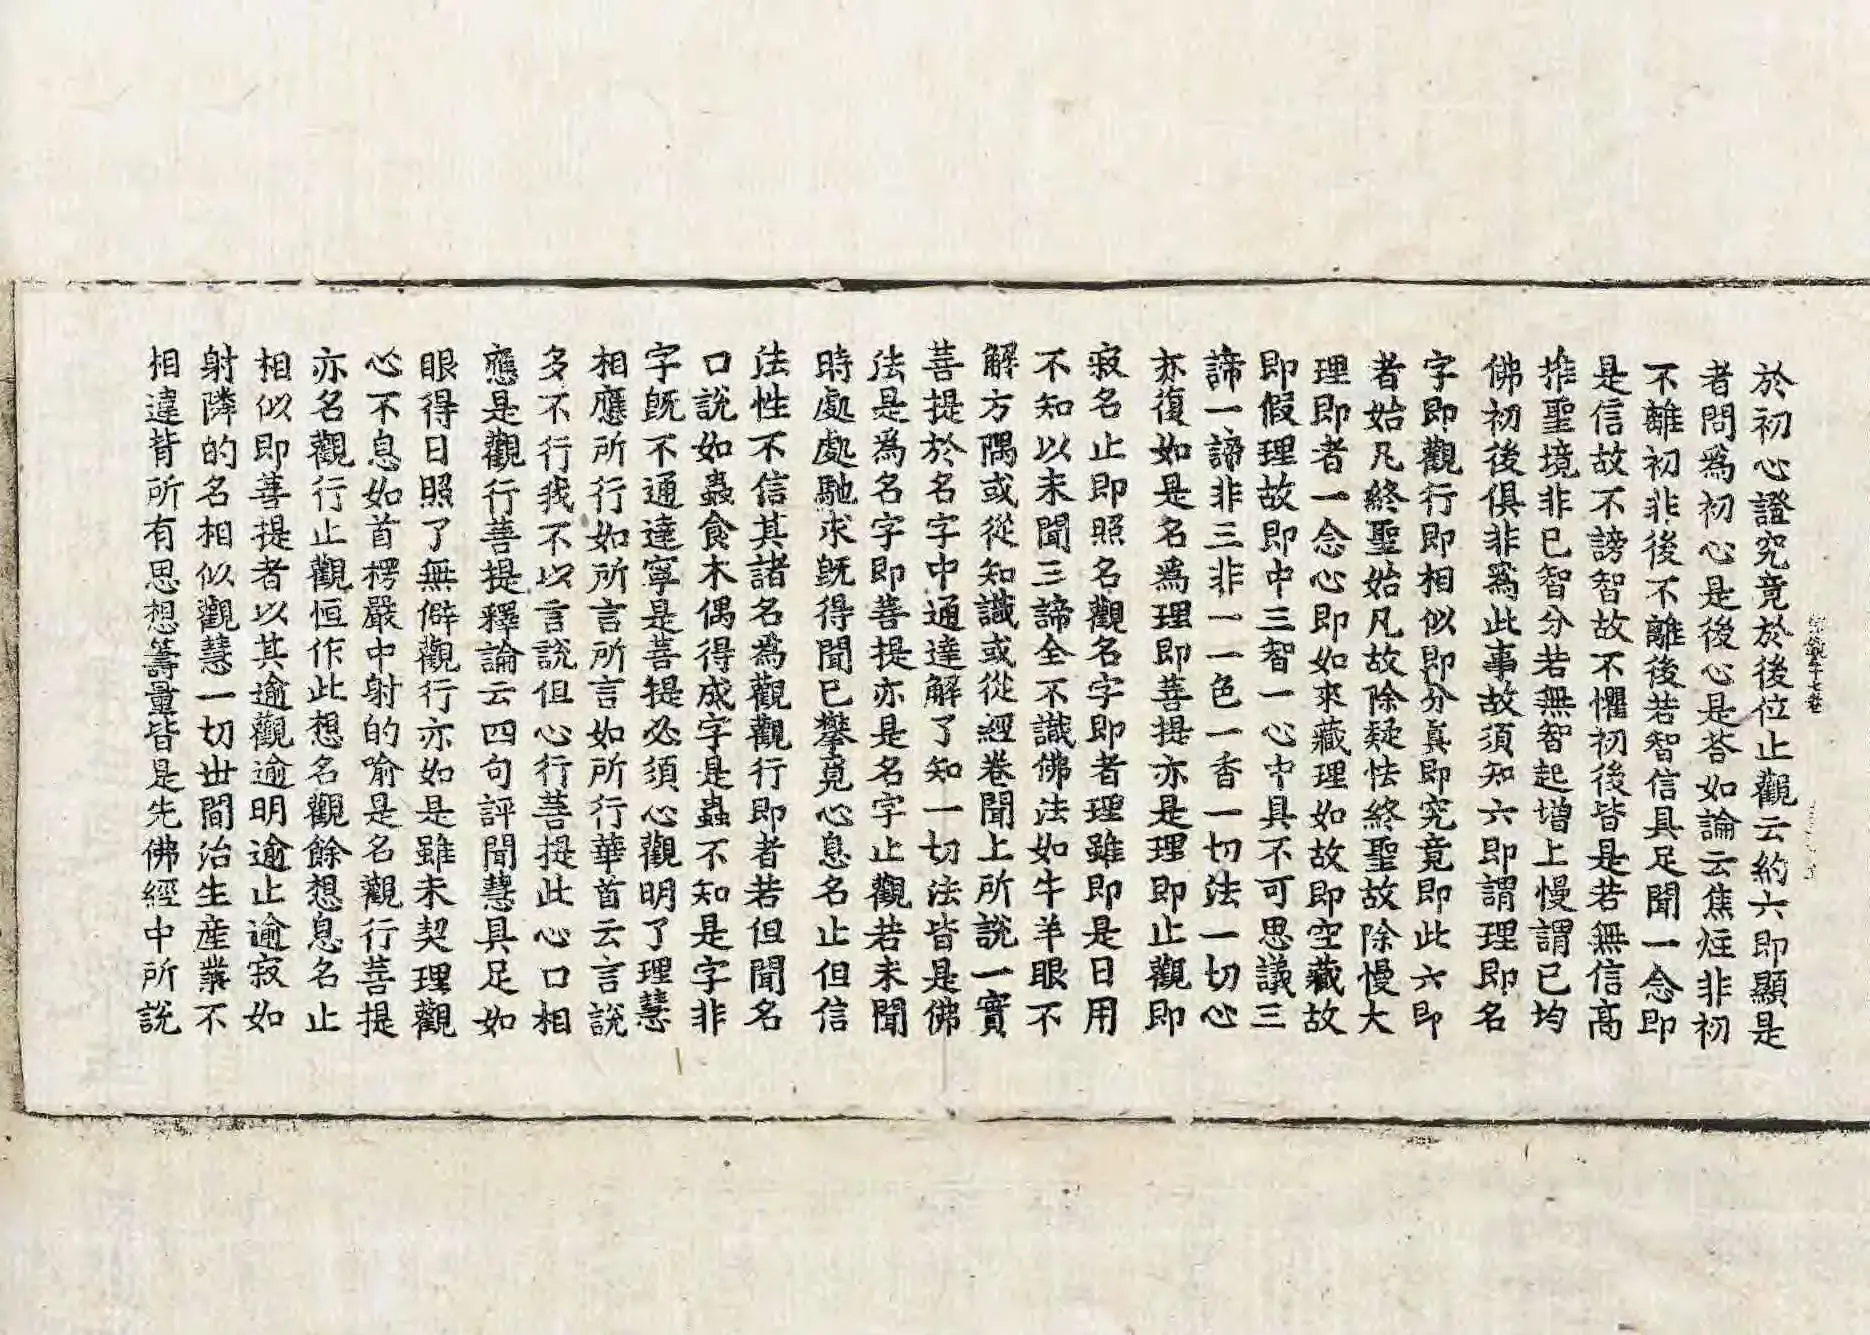 於初心證究竟於後位止觀云約六即顯是
者問爲初心是後心是荅如論云焦炷非初
不離初非後不離後若智信具足聞一念即
是信故不謗智故不懼初後皆是若無信高
推聖境非已智分若無智起增上慢謂已均
佛初後俱非爲此事故須知六即謂理即名
字即觀行即相似即分真即究竟即此六即
者始凡終聖始凡故除疑怯終聖故除慢大
理即者一念心即如來藏理如故即空藏故
即假理故即中三智一心中具不可思議三
諦一諦非三非一一色一香一切法一切心
亦復如是名爲理即菩提亦是理即止觀即
寂名止即照名觀名字即者理雖即是日用
不知以未聞三諦全不識佛法如牛羊眼不
解方隅或從知識或從經卷聞上所說一實
菩提於名字中通達解了知一切法皆是佛
法是爲名字即菩提亦是名字止觀若未聞
時處處馳求旣得聞已攀覓心息名止但信
法性不信其諸名爲觀觀行即者若但聞名
口說如蟲食木偶得成字是蟲不知是字非
字旣不通達寧是菩提必須心觀明了理慧
相應所行如所言所言如所行華首云言說
多不行我不以言說但心行菩提此心口相
應是觀行菩提釋論云四句評聞慧具足如
眼得日照了無僻觀行亦如是雖未契理觀
心不息如首楞嚴中射的喻是名觀行菩提
亦名觀行止觀恒作此想名觀餘想息名止
相似即菩提者以其逾觀逾明逾止逾寂如
射隣的名相似觀慧一切世間治生産業不
相違背所有思想籌量皆是先佛經中所說